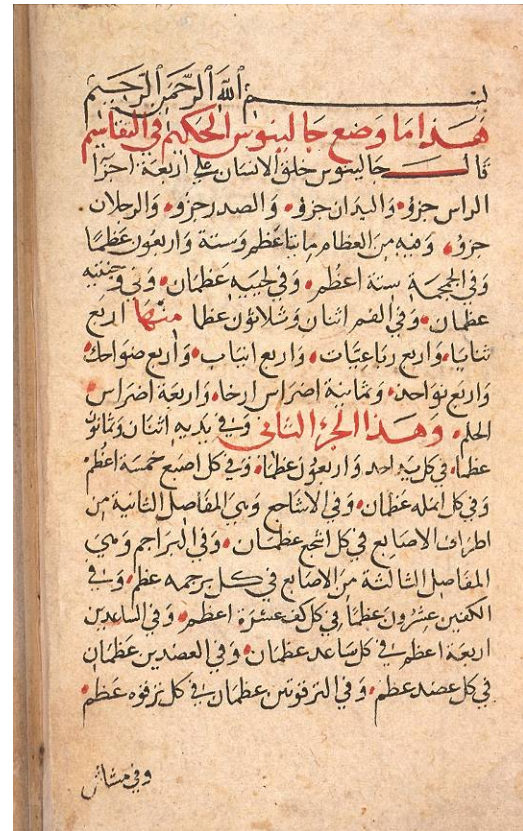 بسم الله الرحمن الرحيم
هذا ما وضع جالينوس الحكيم في التقاسيم
قال جالينوس خلق الانسان علي اربعة اجزآ
الراس جزؤ واليدان جزؤ والصدر جزؤ والرجلان
جزؤ وفيه من العظام مائتا عظم وستة واربعون عظما
وفي الجمجمة ستة اعظم وفي لحييه عظمان وفي وجنتيه
عظمان وفي الفم اثنان وثلاثون عظما منها اربع
ثنايا واربع رباعيات واربع انياب واربع ضواحك
واربع نواجد وثمانية اضراس ارحا واربعة اضراس
الحلم وهذا الجزء الثاني وفي يديه اثنان وثمانون
عظما في كل يد احد واربعون عظما وفي كل اصبع خمسة اعظم
وفي كل انمله عظمان وفي الاشاجع وهي المفاصل الثانية من
اطراف الاصابع في كل اشجع عظمان وفي البراجم وهي
المفاصل الثالثة من الاصابع في كل برجمه عظم وفي
الكفين عشرون عظما في كل كف عشرة اعظم وفي الساعدين
اربعة اعظم في كل ساعد عظمان وفي العضدين عظمان
في كل عضد عظم وفي الترقوتين عظمان في كل ترقوه عظم
وفي مشاش